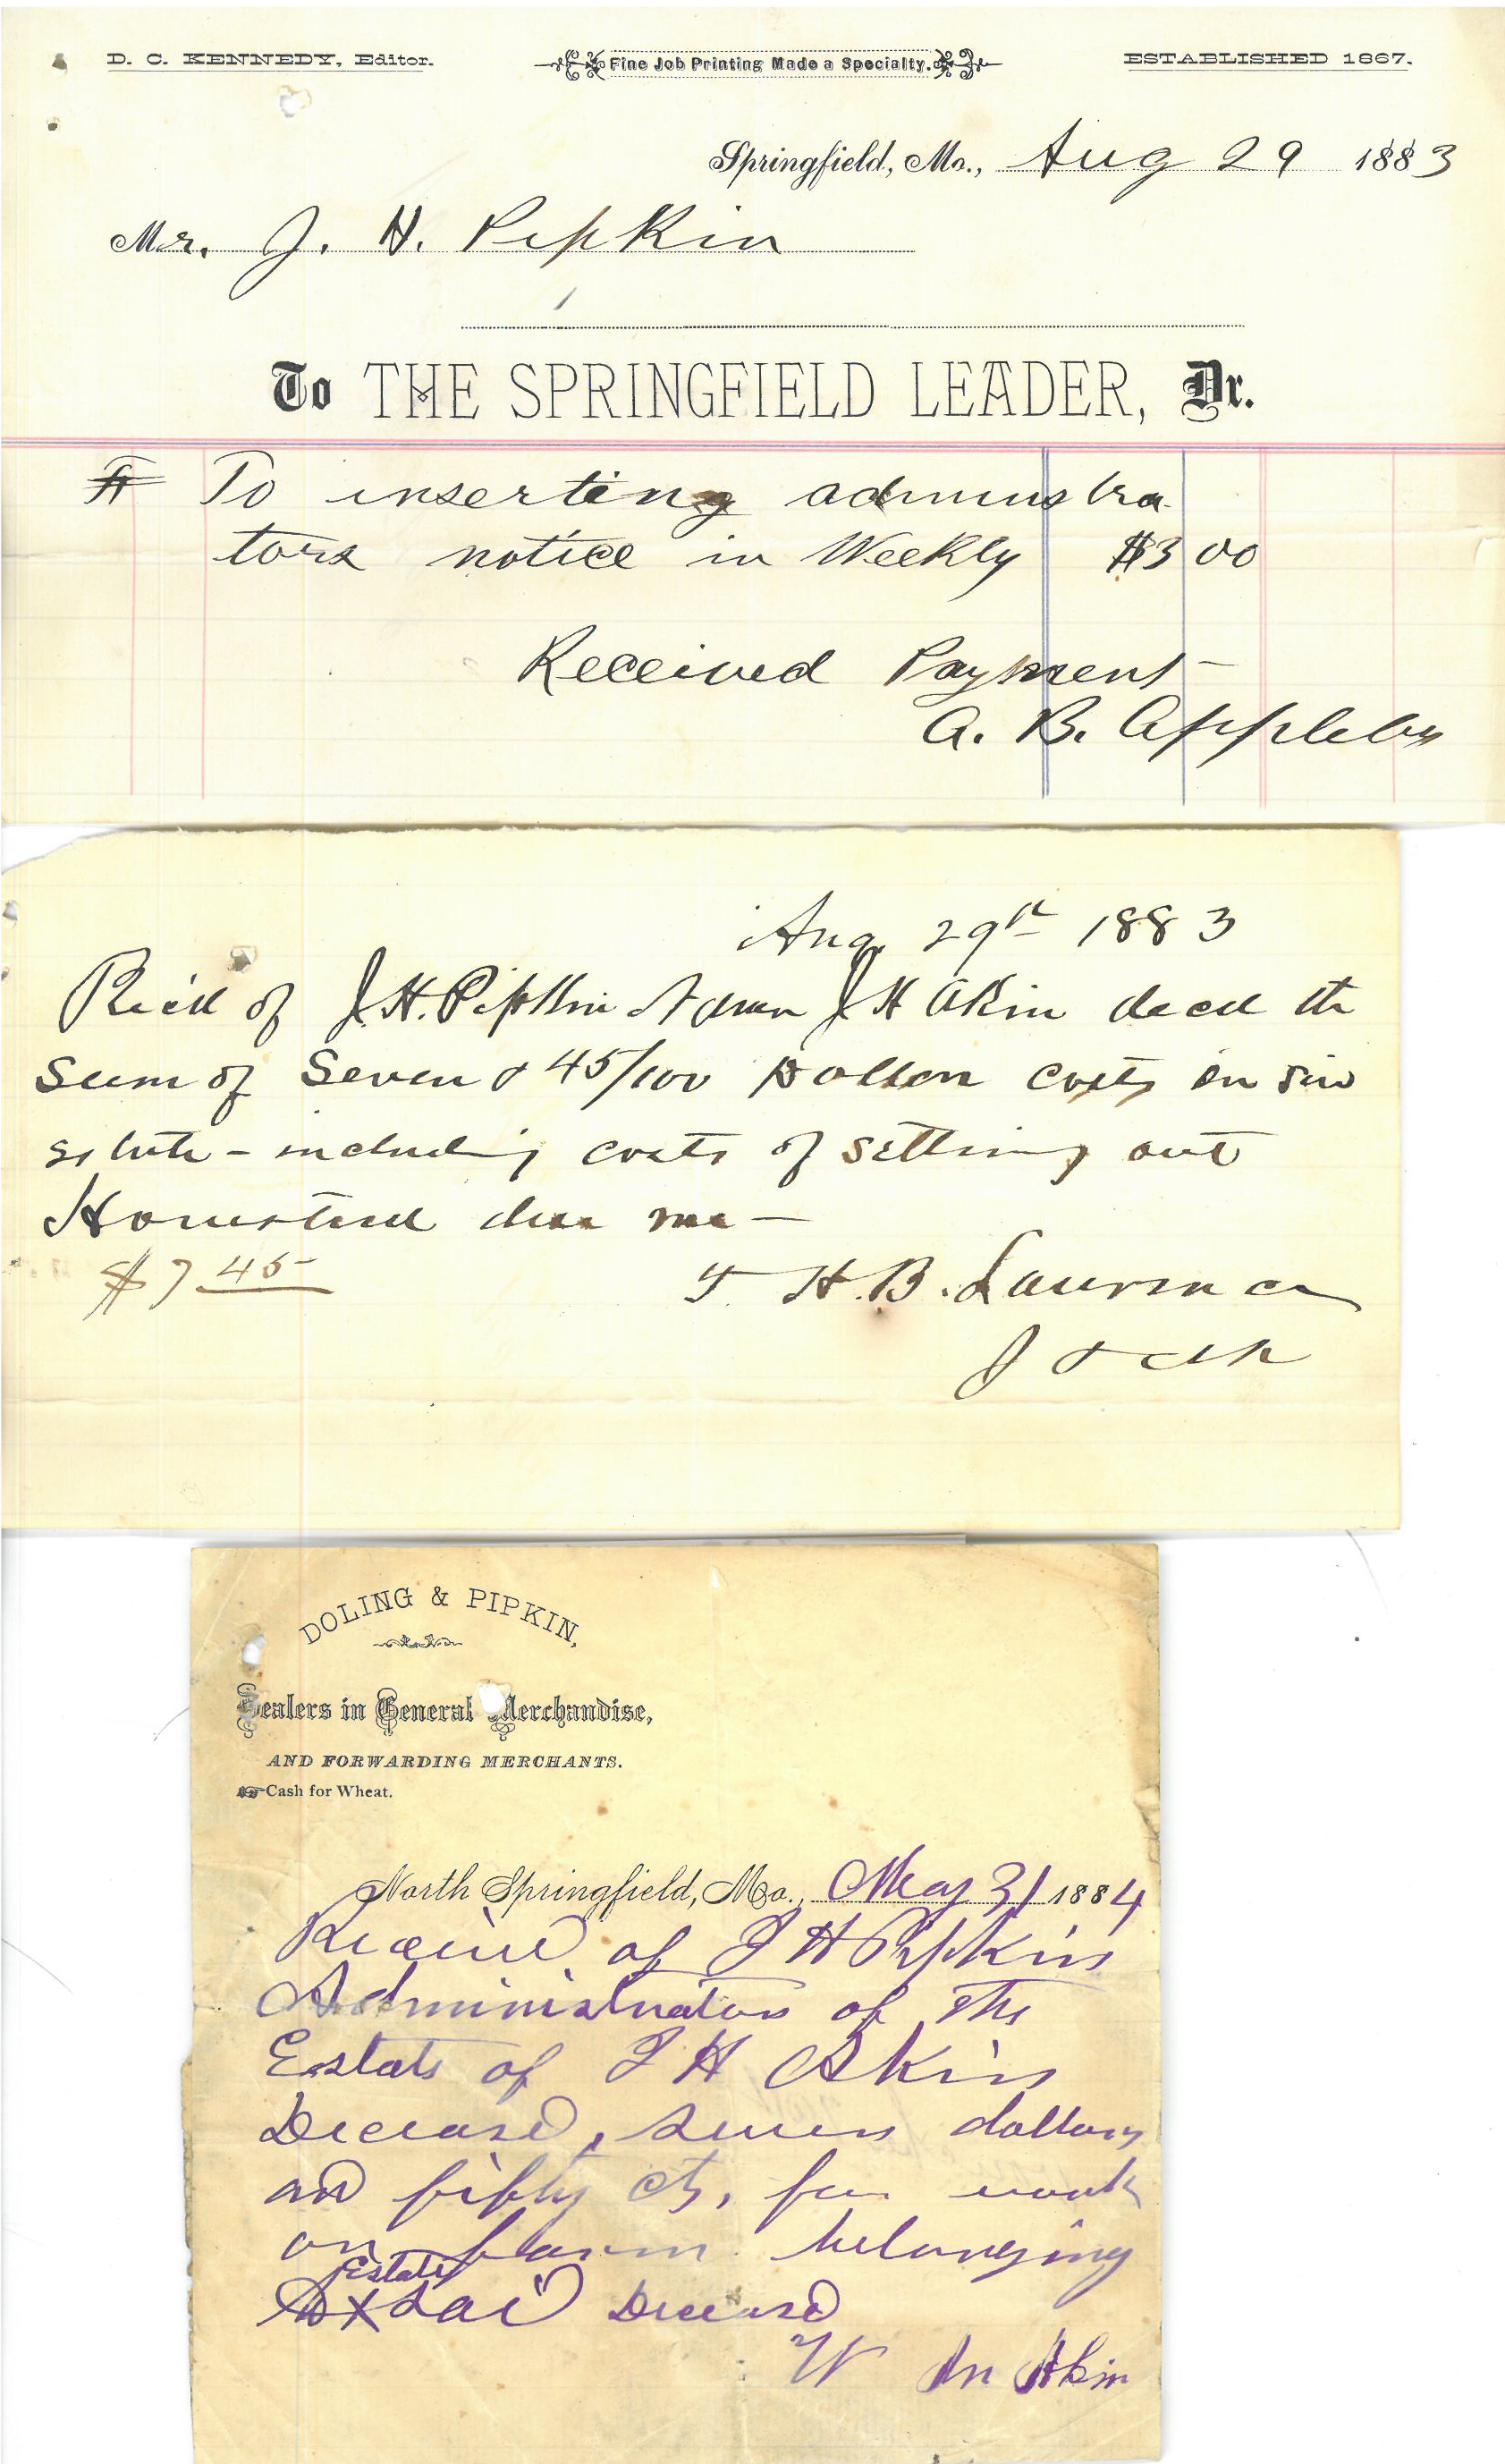 D. C. KENNEDY, Editor. Fine Job Printing Made a Specialty. ESTABLISHED 1867.
Springfield, Mo., Aug 29 1883
Mr. J. H. Pipkin
To THE SPRINGFIELD LEADER, Dr.
To inserting administra
tors notice in Weekly $3 00
Received Payment
A. B. Appleby
Aug 29th 1883
Recd of J. H. Pipkin Admr J H Akin decd the
Sum of Seven & 45/100 Dollars costs in
- including costs of setting out
Homestead due me -
$7 45
T. H. B. Lawrence
DOLING & PIPKIN,
Dealers in General Merchandise,
AND FORWARDING MERCHANTS.
Cash for Wheat.
North Springfield, Mo., May 31 1884
Received of J H Pipkin
Administrator of the
Estate of J H Akin
Deceased, seven dollars
and fifty cts, for work
on farm belonging
Estate
to x said Deceased
W M Akin